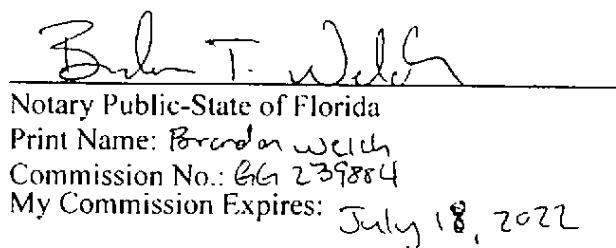 Brandon T. Welch
Notary Public-State of Florida
Print Name: Brandon Welch
Commission No.: GG 239884
My Commission Expires: July 18, 2022